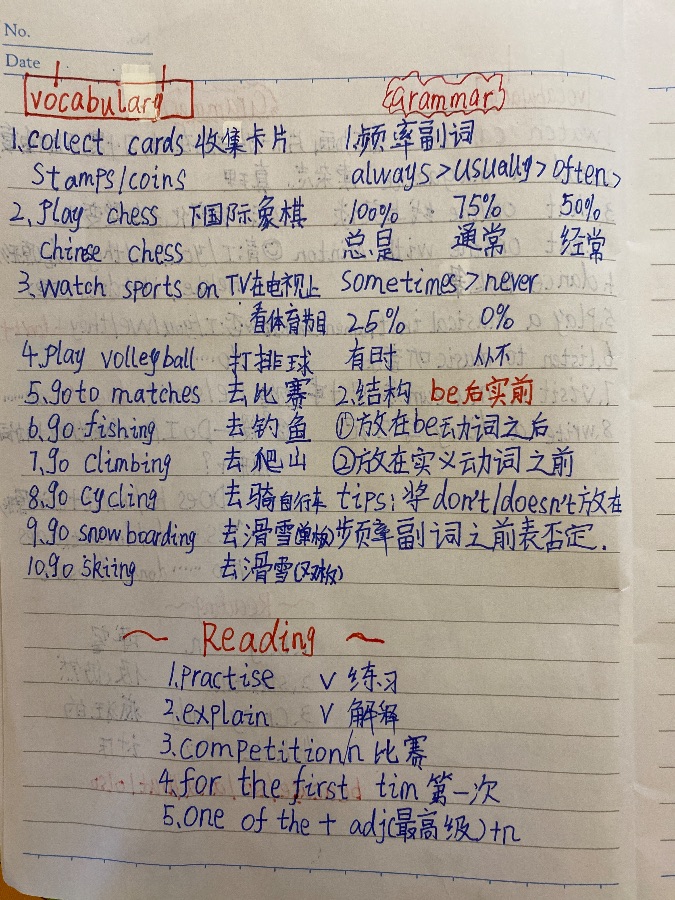 No.
Date
vocabulary
1.collect cards 收集卡片
Stamps/coins
2.Play chess 下国际象棋
Chinese chess
3.watch sports on TV在电视上
看体育节目
4.Play volleyball 打排球
5.go to matches 去比赛
6.go fishing 去钓鱼
7.go climbing 去爬山
8.go cycling 去骑自行车
9.go snowboarding 去滑雪(单板)
10.go skiing 去滑雪(双板)
Grammar
1.频率副词
always>usually>often>
100% 75% 50%
总是 通常 经常
sometimes>never
25% 0%
有时 从不
2.结构 be后实前
①放在be动词之后
②放在实义动词之前
tips:将don't/doesn't放在
频率副词之前表否定.
~ Reading ~
1.Practise V 练习
2.explain V 解释
3.competition/n 比赛
4.for the first tim 第一次
5.One of the + adj(最高级)+n